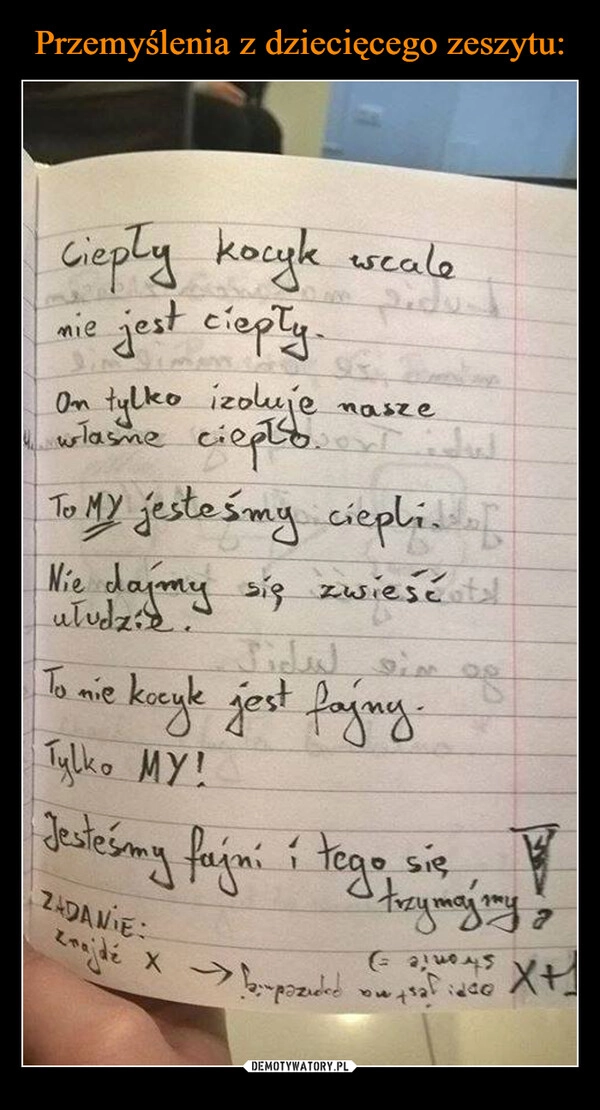 Przemyślenia z dziecięcego zeszytu:
Ciepły kocyk wcale
nie jest ciepły.
On tylko izoluje nasze
własne ciepło.
To MY jesteśmy ciepli.
Nie dajmy się zwieść
ułudzie.
To nie kocyk jest fajny.
Tylko MY!
Jesteśmy fajni i tego się
trzymajmy!
ZADANIE:
Znajdź x →
odpi jest na poprzedniej
stronie =)
DEMOTYWATORY.PL